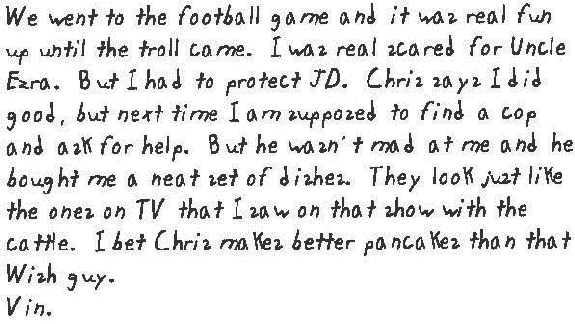 We went to the football game and it was real fun
up until the troll came. I was real scared for Uncle
Ezra. But I had to protect JD. Chris says I did
good, but next time I am supposed to find a cop
and ask for help. But he wasn't mad at me and he
bought me a neat set of dishes. They look just like
the ones on TV that I saw on that show with the
cattle. I bet Chris makes better pancakes than that
Wish guy.
Vin.